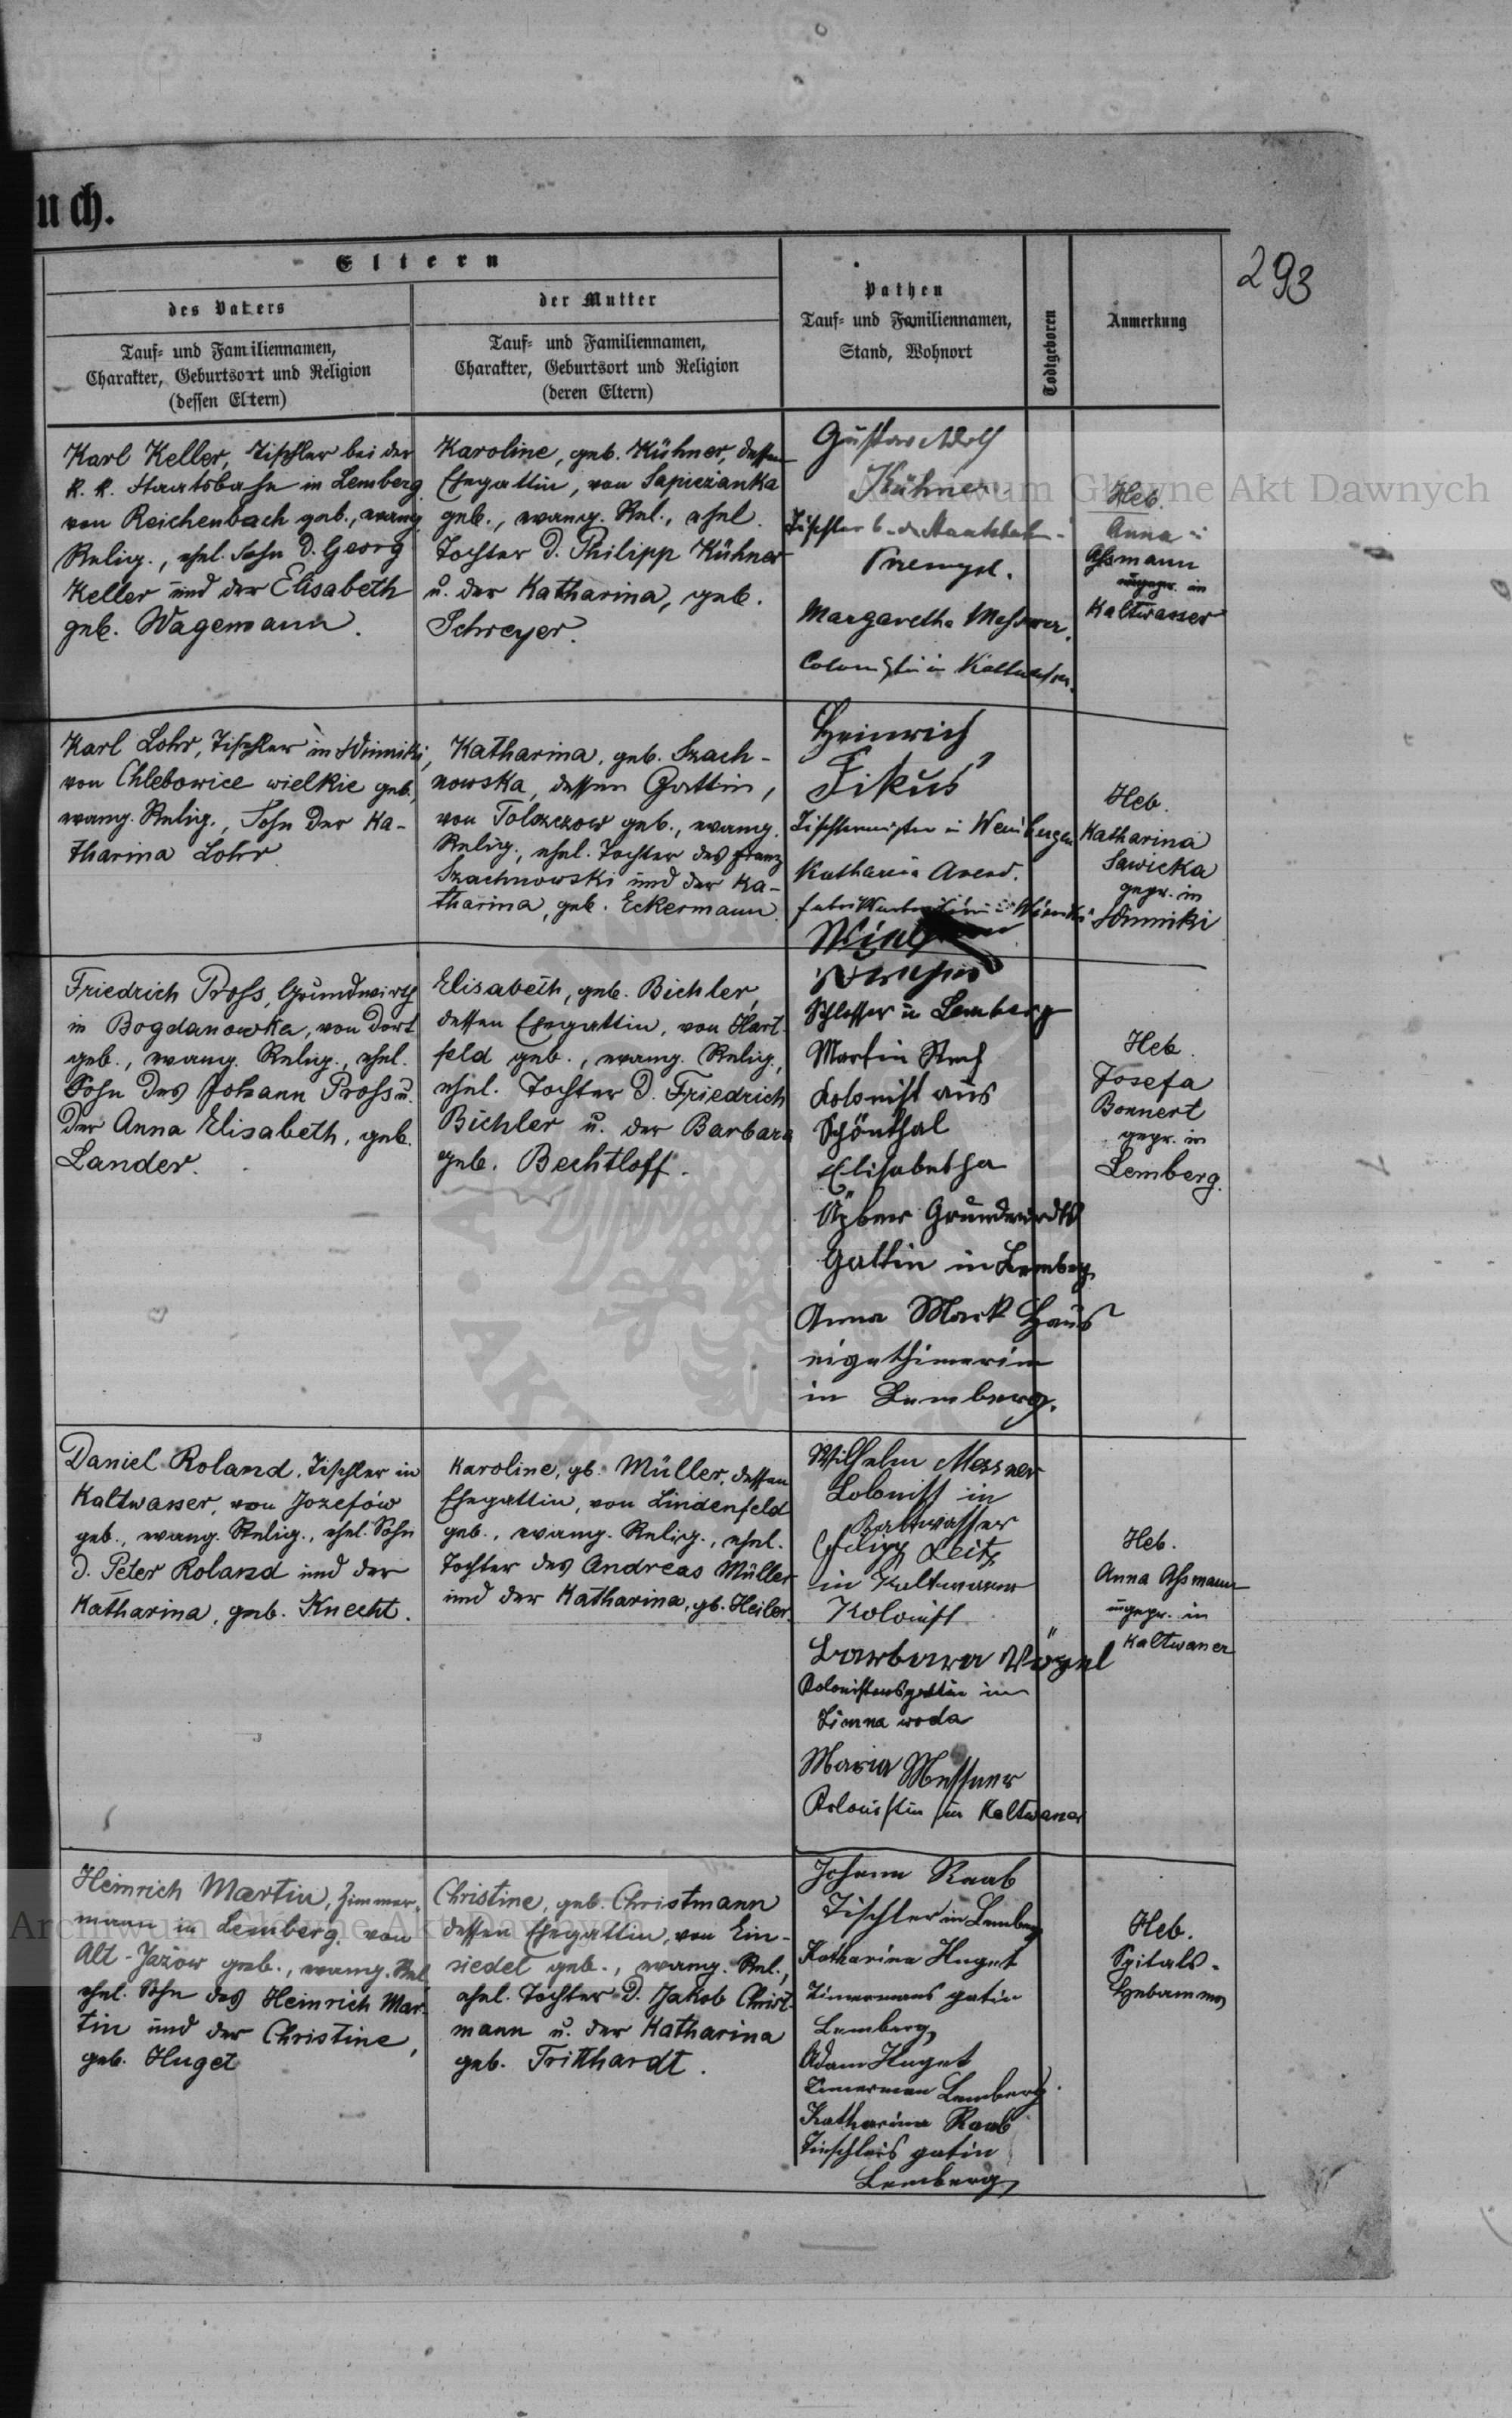 uch.
293
Eltern
des Vaters
Tauf- und Familiennamen,
Charakter, Geburtsort und Religion
(dessen Eltern)
der Mutter
Tauf- und Familiennamen,
Charakter, Geburtsort und Religion
(deren Eltern)
Pathen
Tauf- und Familiennamen,
Stand, Wohnort
Todtgeboren
Anmerkung
Karl Keller, Tischler bei der
k. k. Staatsbahn in Lemberg
von Reichenbach geb., evang.
Relig., ehel. Sohn d. Georg
Keller und der Elisabeth
geb. Wagemann.
Karoline, geb. Kühner, dessen
Ehegattin, von Sapiezanka
geb., evang. Rel., ehel.
Tochter d. Philipp Kühner
u. der Katharina, geb.
Schreyer.
Gustav Adolf
Kühner
Tischler b. d. Staatsbahn
Przemysl.
Margaretha Messner,
Colonistin in Kaltwasser.
Heb.
Anna
Assmann
ungepr. in
Kaltwasser
Karl Lohr, Tischler in Winniki,
von Chlebowice wielkie geb.,
evang. Relig., Sohn der Ka-
tharina Lohr
Katharina, geb. Szach-
nowska, dessen Gattin,
von Tolszczow geb., evang.
Relig., ehel. Tochter des Franz
Szachnowski und der Ka-
tharina, geb. Eckermann
Heinrich
Fikus
Tischlermeister in Weinbergen
Katharina Arend.
Fabriksarbeiterin in Winniki
Heb.
Katharina
Sawicka
gepr. in
Winniki
Friedrich Pross, Grundwirth
in Bogdanowka, von dort
geb., evang. Relig., ehel.
Sohn des Johann Pross u.
der Anna Elisabeth, geb.
Lander.
Elisabeth, geb. Bichler,
dessen Ehegattin, von Hart-
feld geb., evang. Relig.,
ehel. Tochter d. Friedrich
Bichler u. der Barbara
geb. Bechtloff.
Schlosser in Lemberg
Martin
Kolonist aus
Schönthal
Elisabetha
Grundwirdts
Gattin in Lemberg
Anna Mark Haus
eigethimerin
in Lemberg.
Heb.
Josefa
Bonnert
gepr. in
Lemberg.
Daniel Roland, Tischler in
Kaltwasser, von Jozefów
geb., evang. Relig., ehel. Sohn
d. Peter Roland und der
Katharina, geb. Knecht.
Karoline, gb. Müller, dessen
Ehegattin, von Lindenfeld
geb., evang. Relig., ehel.
Tochter des Andreas Müller
und der Katharina, gb. Heiler.
Wilhelm Messner
Colonist in
Kaltwasser
Leitz
in Kaltwasser
Kolonist
Barbara Vögel
Kolonistensgattin in
Zimna woda
Maria Messner
Kolonistin in Kaltwasser
Heb.
Anna Assmann
ungepr. in
Kaltwasser
Heinrich Martin, Zimmer-
mann in Lemberg, von
Alt-Jażow geb., evang. Rel.
ehel. Sohn des Heinrich Mar-
tin und der Christine,
geb. Huget
Christine, geb. Christmann
dessen Ehegattin, von Ein-
siedel geb., evang. Rel.,
ehel. Tochter d. Jakob Christ-
mann u. der Katharina
geb. Tritthardt.
Johann Raab
Tischler in Lemberg
Katharina Huget
Zimermans gatin
Lemberg,
Adam Huget
Zimerman Lemberg.
Katharina Raab
Tieschlers gatin
Lemberg
Heb.
Spitals-
Hebamme
Archiwum Główne Akt Dawnych
Archiwum Główne Akt Dawnych